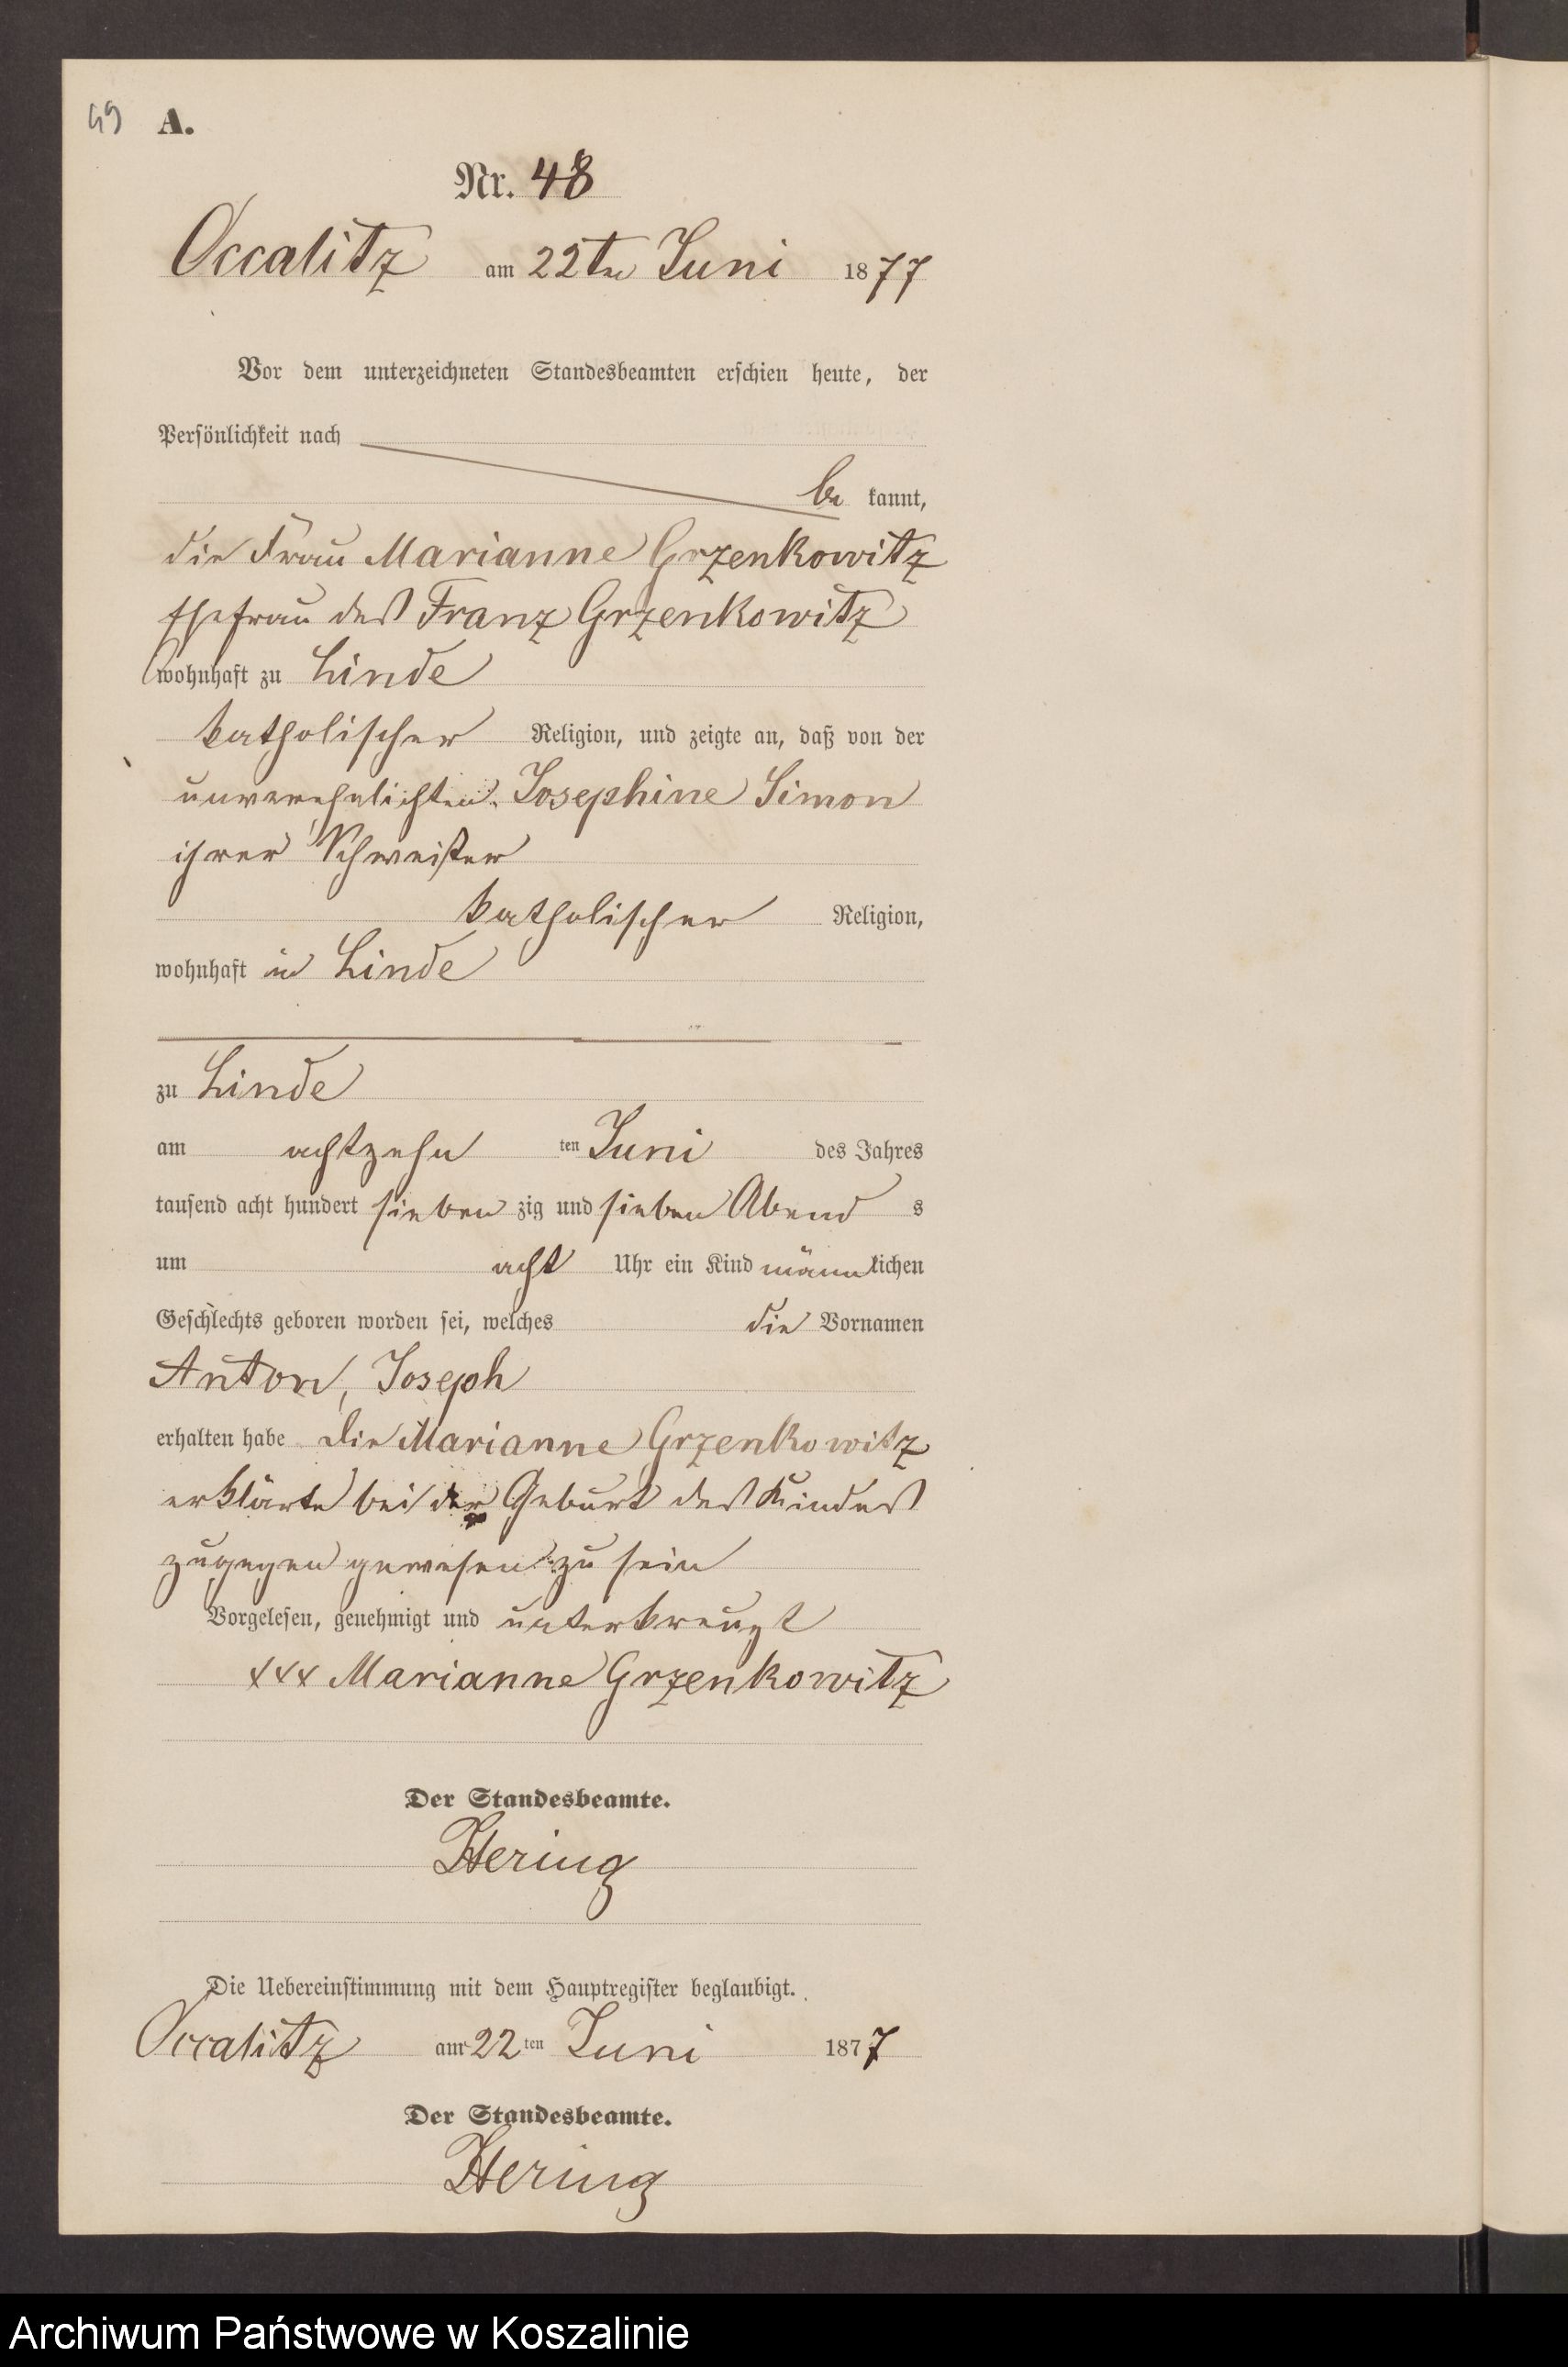 49 A.
Nr. 48
Occalitz am 22ten Juni 1877
Vor dem unterzeichneten Standesbeamten erschien heute, der
Persönlichkeit nach
be kannt,
die Frau Marianne Grzenkowitz
Ehefrau des Franz Grzenkowitz
wohnhaft zu Linde
katholischer Religion, und zeigte an, daß von der
unverehelichten Josephine Simon
ihrer Schweister
katholischer Religion,
wohnhaft in Linde
zu Linde
am achtzehn ten Juni des Jahres
tausend acht hundert sieben zig und sieben Abend s
um acht Uhr ein Kind männ lichen
Geschlechts geboren worden sei, welches die Vornamen
Anton, Joseph
erhalten habe die Marianne Grzenkowitz
erklärte bei der Geburt des Kindes
zugegen gewesen zu sein
Vorgelesen, genehmigt und unterkreuzt
xxx Marianne Grzenkowitz
Der Standesbeamte.
Hering
Die Uebereinstimmung mit dem Hauptregister beglaubigt.
Occalitz am 22 ten Juni 1877
Der Standesbeamte.
Hering
Archiwum Państwowe w Koszalinie